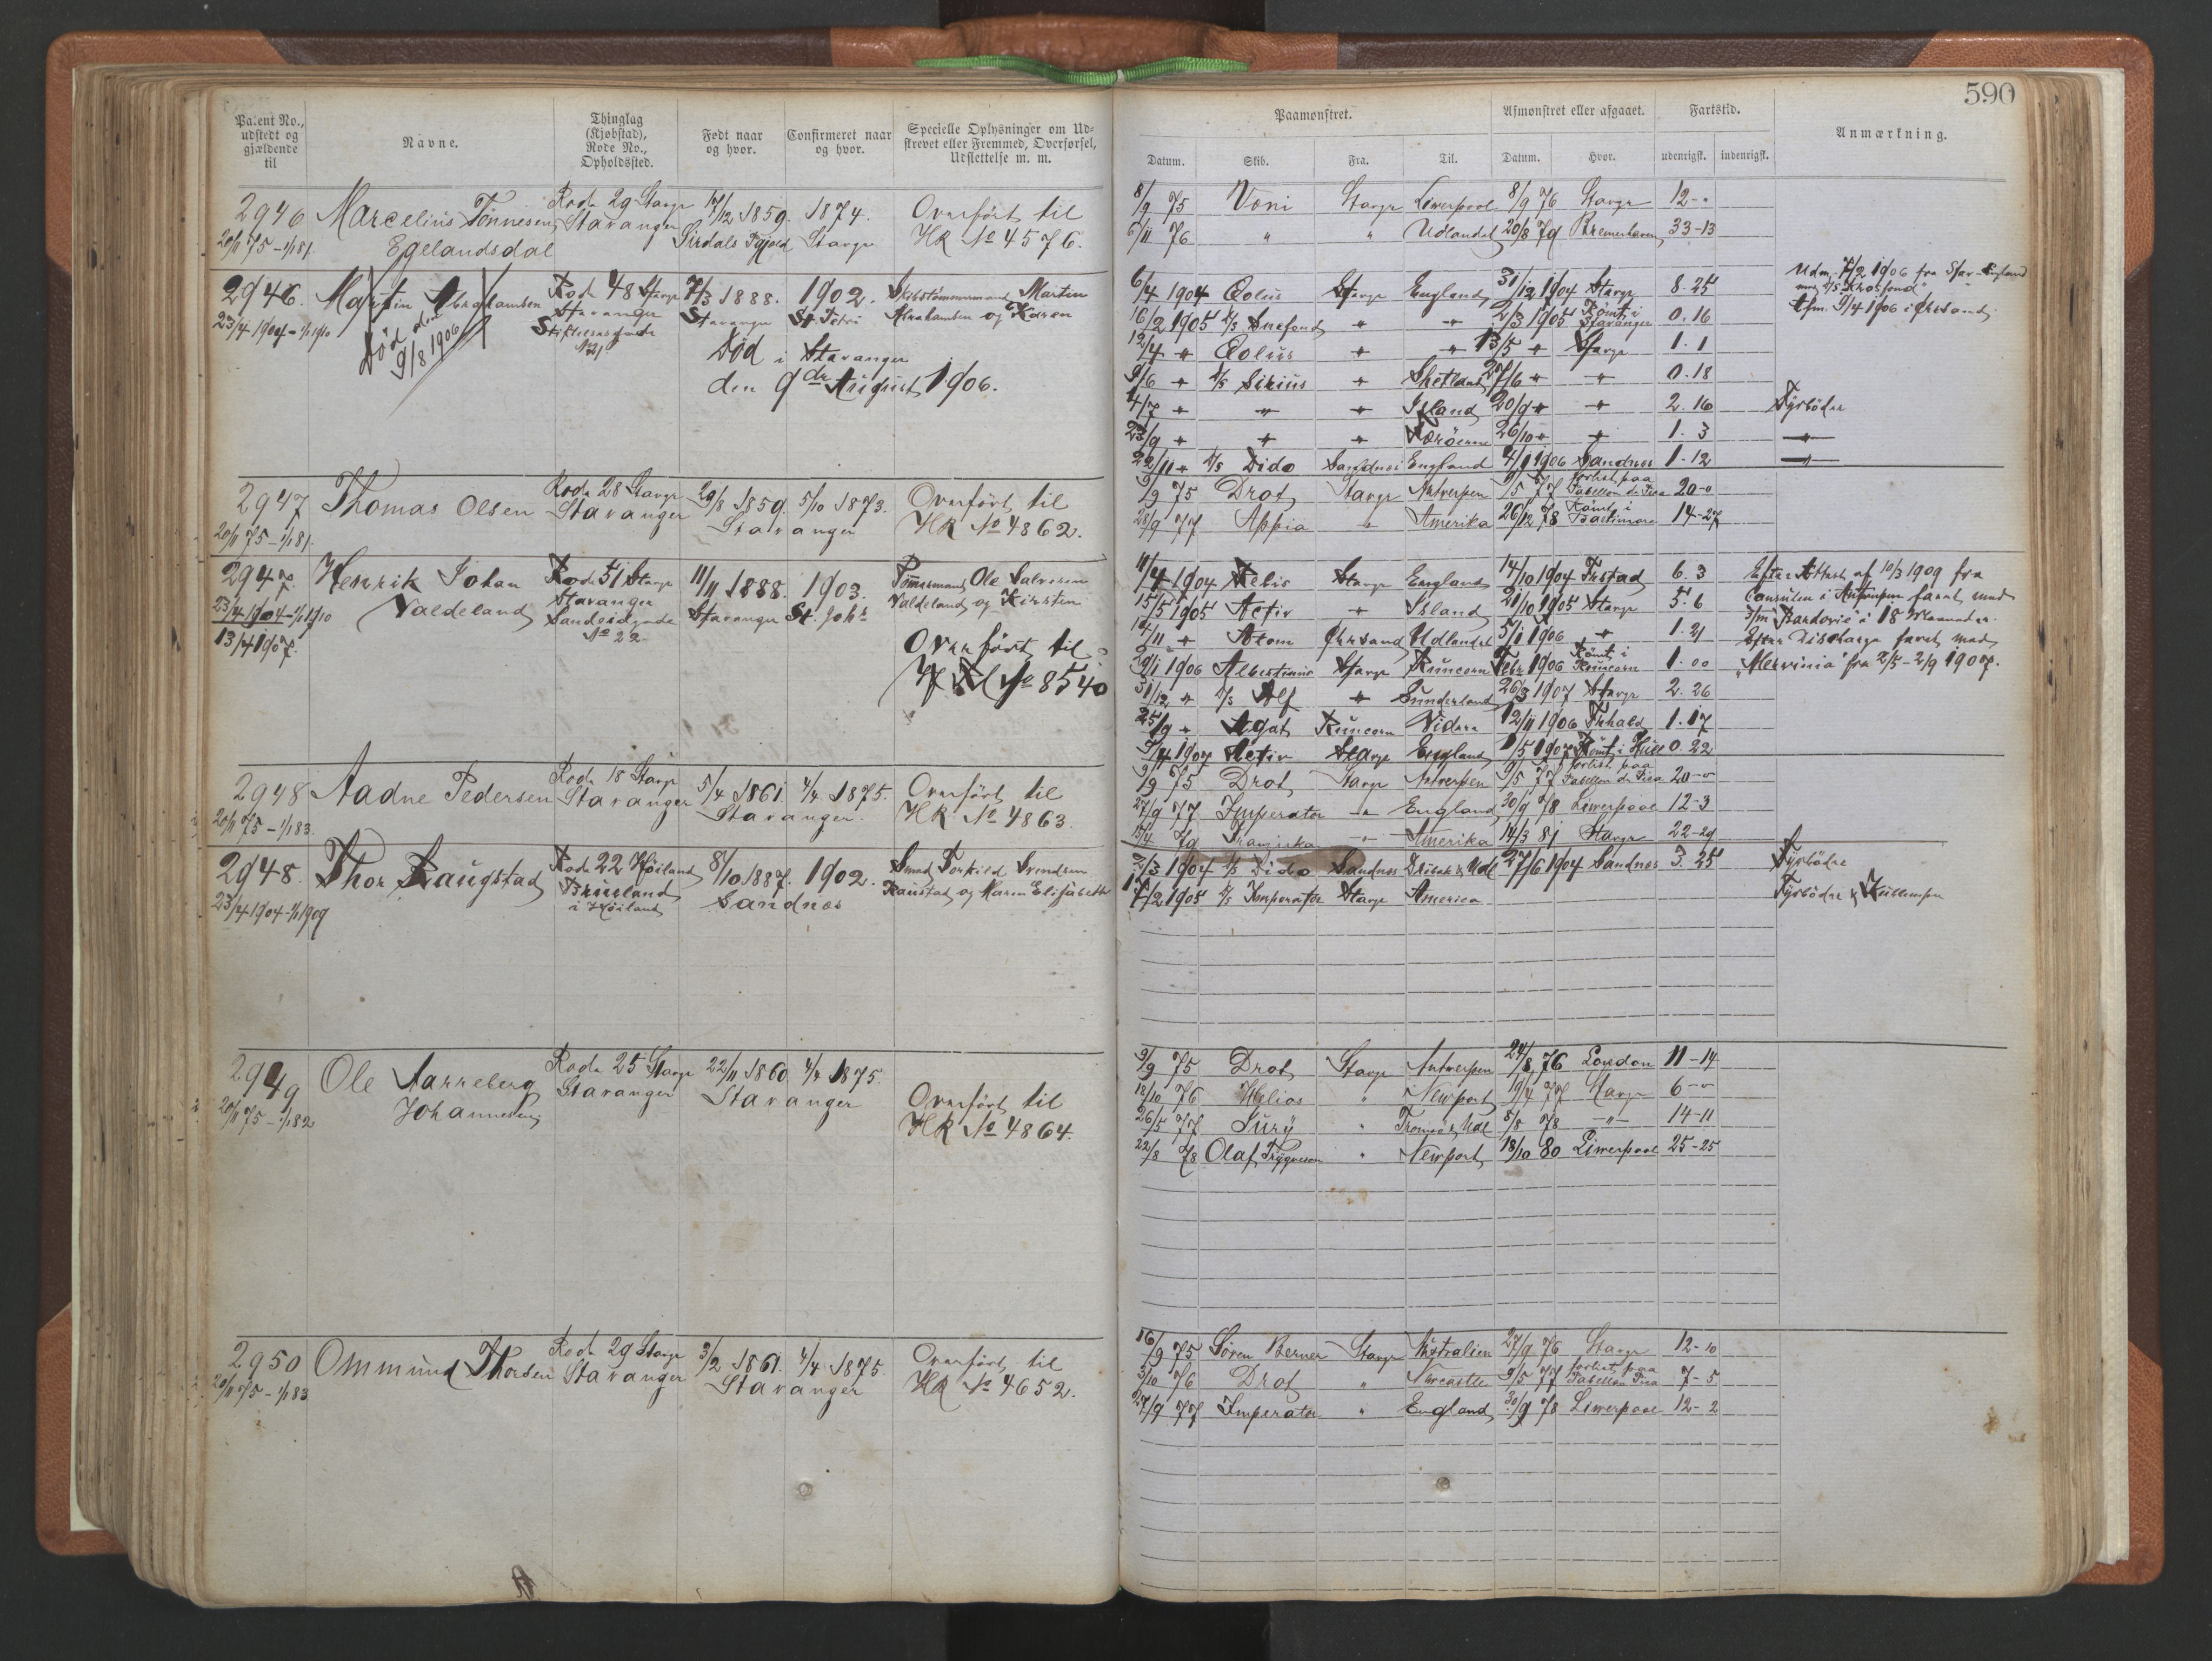 590
Patent No., udstedt og gjældende til
Navne.
Thinglag (Kjøbstad), Rode No., Opholdssted.
Født naar og hvor.
Confirmeret naar og hvor.
Specielle Oplysninger om Udskrevet eller Fremmed, Overførsel, Udslettelse m. m.
Paamønstret.
Afmønstret eller afgaaet.
Fartstid.
Anmærkning.
Datum. Skib. Fra. Til. Datum. Hvor. udenrigsk. indenrigsk.
2946 Marcelius Tönnesen Rode 29 Stavgr 17/12 1859. 1874. Overfört til
20/11 75 - 1/1 81. Egelandsdal Stavanger Sirdals Fjeld Stavgr HR No 4576.
8/9 75 Voni Stavgr Liverpool 8/9 76 Stavgr 12 - "
6/11 76 " " Udlandet 20/8 79 Bremerhaven 33-13
2946. Martin Abrahamsen Rode 48 Stavgr 7/3 1888. 1902. Skibstömmermand Martin
23/4 1904 - 1/1 1910 Stavanger Stavanger St. Petri Abrahamsen og Karen
Död den 9/8 1906
Död i Stavanger
den 9de August 1906.
6/4 1904 Æolus Stavgr England 31/12 1904 Stavgr 8. 25
16/2 1905 D/S Snefond " " 2/3 1905 Römt i Stavanger 0. 16
12/4 " Æolus " " 13/5 " Stavgr 1. 1
9/6 " D/S Sirius " Shetland 27/6 " " 0. 18
4/7 " " " Island 20/9 " " 2. 16 Fyrböder
23/9 " " " Færöerne 26/10 " " 1. 3 "
22/11 " D/S Dido Sandnes England 4/1 1906 Sandnes 1. 12 "
Udm. 7/2 1906 fra Stav - England
Afm. 9/4 1906 i Chrsand.
2947 Thomas Olsen Rode 28 Stavgr 29/8 1859. 5/10 1873. Overfört til
20/11 75 - 1/1 81. Stavanger Stavanger HR No 4862.
9/9 75 Drot Stavgr Antverpen 9/5 77 forlist paa 20 - "
28/9 77 Appia " Amerika 26/12 78 Römt i Baltimore 14-27
2947. Henrik Johan Rode 51 Stavgr 11/11 1888. 1903. Tömmermand Ole Salvesen
23/4 1904 - 1/1 1910 Valdeland Stavanger Stavanger St. Johs Valdeland og Kirsten
13/4 1907. Sandeidgade No 22
Overfört til
HR No 8540
11/4 1904 Stavgr England 14/10 1904 6. 3
15/5 1905 Activ " Island 21/10 1905 Stavgr 5. 6
11 " Atom Chrsand Udlandet 5/1 1906 " 1. 21
29/1 1906 Albertine Stavgr Runcorn Febr 1906 Römt i Runcorn 1. 00
31/12 " D/S Alf " Sunderland 26/3 1907 Stavgr 2. 26
25/9 " Agat Runcorn 12/11 1906 Frhald 1. 17
9/4 1907 Activ Stavgr England 1/5 1907 Römt i Hull 0. 22
Efter Attest af 10/3 1909 fra
Consulen i Antverpen faret med
i 18 Maaneder.
Efter Discharge faret med
"Mervinia" fra 2/5 - 2/9 1907.
2948 Aadne Pedersen Rode 18 Stavgr 5/4 1861. 4/4 1875. Overfört til
20/11 75 - 1/1 83. Stavanger Stavanger. HR No 4863.
9/9 75 Drot Stavgr Antverpen 9/5 77 forlist paa 20 - "
27/9 77 Imperator " England 30/9 78 Liverpool 12-3
15/4 79 " Amerika 14/3 81 Stavgr 22-29
2948. Thor Raugstad Rode 22 Höiland 8/10 1887. 1902. Smed Torkild Svendsen
23/4 1904 - 1/1 1909 Brueland i Höiland Sandnes Raustad og Maren Elisabeth
2/3 1904 D/S Dido Sandnes Udl 27/6 1904 Sandnes 3. 25 Fyrböder
1/2 1905 D/S Imperator Stavgr America Fyrböder &
2949 Ole Aarreberg Rode 25 Stavgr 22/11 1860. 4/4 1875. Overfört til
20/11 75 - 1/1 82 Johannesen Stavanger Stavanger HR No 4864.
9/9 75 Drot Stavgr Antverpen 24/8 76 London 11-14
18/10 76 Helios " Newport 19/4 77 Stavgr 6 - "
26/5 77 Jury " Tromsö & Udl 8/8 78 " 14-11
22/8 78 Olaf Trygveson " Newport 18/10 80 Liverpool 25-25
2950 Ommund Thorsen Rode 29 Stavgr 3/2 1861. 4/4 1875. Overfört til
20/11 75 - 1/1 83 Stavanger Stavanger HR No 4652.
16/9 75 Sören Berner Stavgr Australien 27/9 76 Stavgr 12-10
31/10 76 Drot " Newcastle 9/5 77 forlist paa 7-5
27/9 77 Imperator " England 30/9 78 Liverpool 12-2